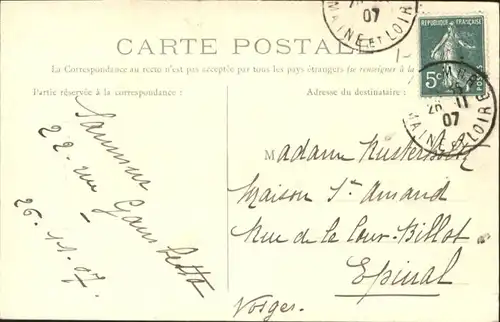 MAINE ET LOIRE
07
CARTE POSTALE
REPUBLIQUE FRANÇAISE
5c
POSTES
26 - 11
07
MAINE ET LOIRE
La Correspondance au recto n'est pas acceptée par tous les pays étrangers (se renseigner à la
Partie réservée à la correspondance :
Adresse du destinataire :
Saumur
22 - rue Gambetta
-
26. 11. 07.
Madame
Maison St Amand
Rue de la Cour-Billot
Epinal
Vosges.